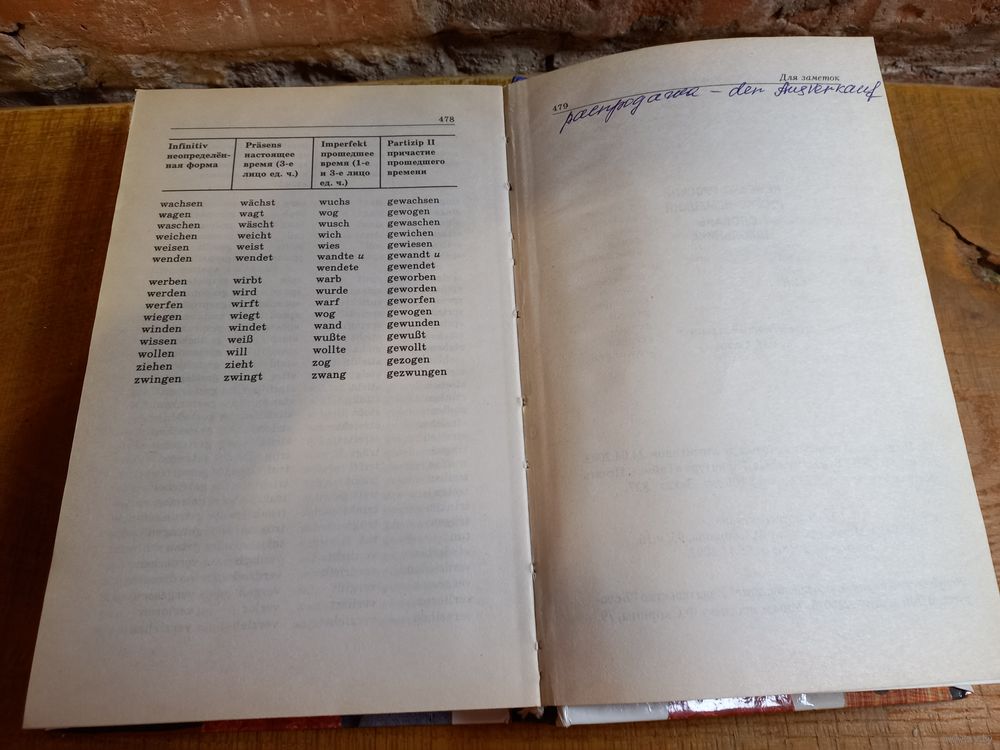 478
Infinitiv неопределён-ная форма | Präsens настоящее время (3-е лицо ед. ч.) | Imperfekt прошедшее время (1-е и 3-е лицо ед. ч.) | Partizip II причастие прошедшего времени
wachsen wächst wuchs gewachsen
wagen wagt wog gewogen
waschen wäscht wusch gewaschen
weichen weicht wich gewichen
weisen weist wies gewiesen
wenden wendet wandte и gewandt и
wendete gewendet
werben wirbt warb geworben
werden wird wurde geworden
werfen wirft warf geworfen
wiegen wiegt wog gewogen
winden windet wand gewunden
wissen weiß wußte gewußt
wollen will wollte gewollt
ziehen zieht zog gezogen
zwingen zwingt zwang gezwungen
Для заметок
479
распродажа - der Ausverkauf